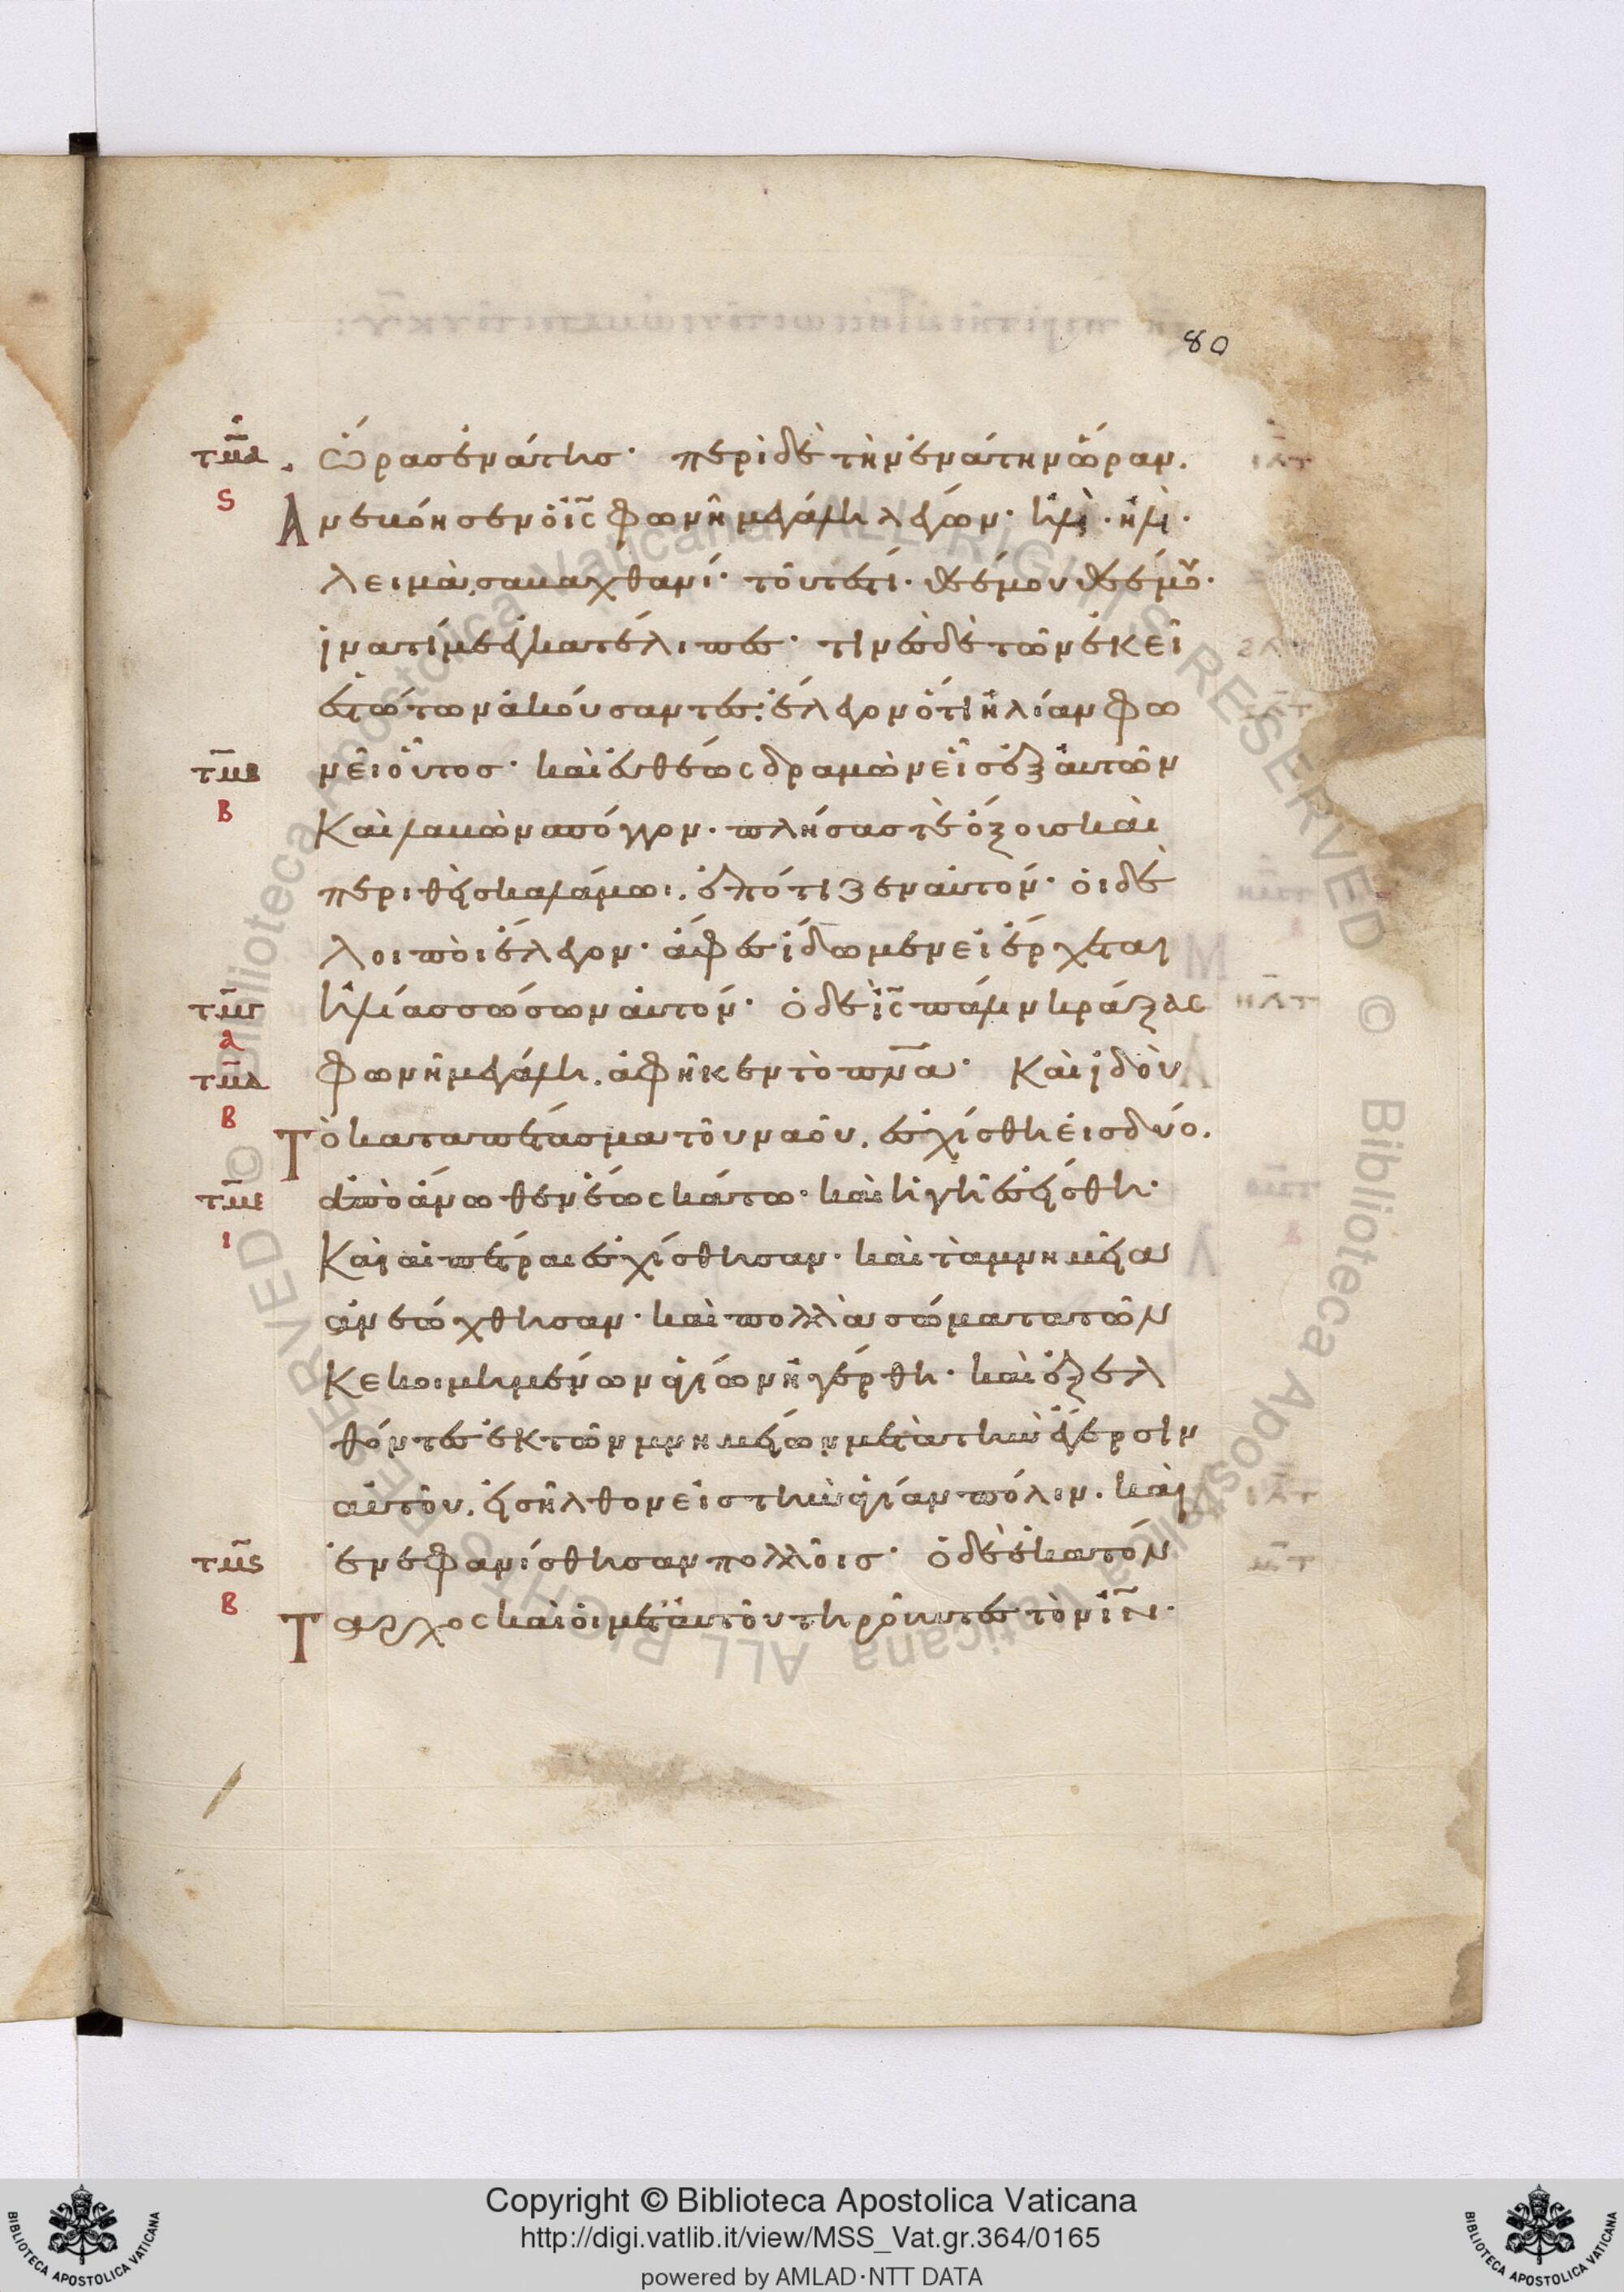 80
τμα ὥρας ἐννάτης· περὶ δὲ τὴν ἐννάτην ὥραν.
ς Ἀνεβόησεν ὁ ις φωνῆ μεγάλη λέγων· ἠλὶ· ἠλὶ·
λειμὰ σαβαχθανί· τοῦτέστι· θεέ μου θεέ μου·
ἱνατί με ἐγκατέλιπες· τινὲς δὲ τῶν ἐκεῖ
ἑστώτων ἀκούσαντες· ἔλεγον ὅτι ἠλίαν φω
τμβ νεῖ οὗτος· καὶ εὐθέως δραμὼν εἷς ἐξ αὐτῶν
β Καὶ λαβὼν σπόγγον· πλήσας τὲ ὄξους καὶ
περιθεὶς καλάμωι· ἐπότιζεν αὐτόν· οἱ δὲ
λοιποὶ ἔλεγον· ἄφες ἴδωμεν εἰ ἔρχεται
τμγ ἠλίας σώσων αὐτόν· ὁ δὲ ις πάλιν κράξας
α
τμδ φωνῆ μεγάλη. ἀφῆκεν τὸ πνα· Καὶ ἰδοὺ
β Τὸ καταπέτασμα τοῦ ναοῦ. ἐσχίσθη εἰς δύο.
τμε ἀπὸ ἄνωθεν ἕως κάτω· καὶ ἡ γῆ ἐσείσθη·
ι Καὶ αἱ πέτραι ἐσχίσθησαν· καὶ τὰ μνημεῖα
ἀνεώχθησαν· καὶ πολλὰ σώματα τῶν
Κεκοιμημένων ἁγίων ἠγέρθη· καὶ ἐξελ
θόντες ἐκ τῶν μνημείων μετὰ τὴν ἔγερσιν
αὐτοῦ. εἰσῆλθον εἰς τὴν ἁγίαν πόλιν. καὶ
τμς ἐνεφανίσθησαν πολλοῖς· ὁ δὲ ἑκατόν
β Ταρχος καὶ οἱ μετ' αὐτοῦ τηροῦντες τὸν ιν·
Copyright © Biblioteca Apostolica Vaticana
http://digi.vatlib.it/view/MSS_Vat.gr.364/0165
powered by AMLAD·NTT DATA
BIBLIOTECA APOSTOLICA VATICANA
BIBLIOTECA APOSTOLICA VATICANA